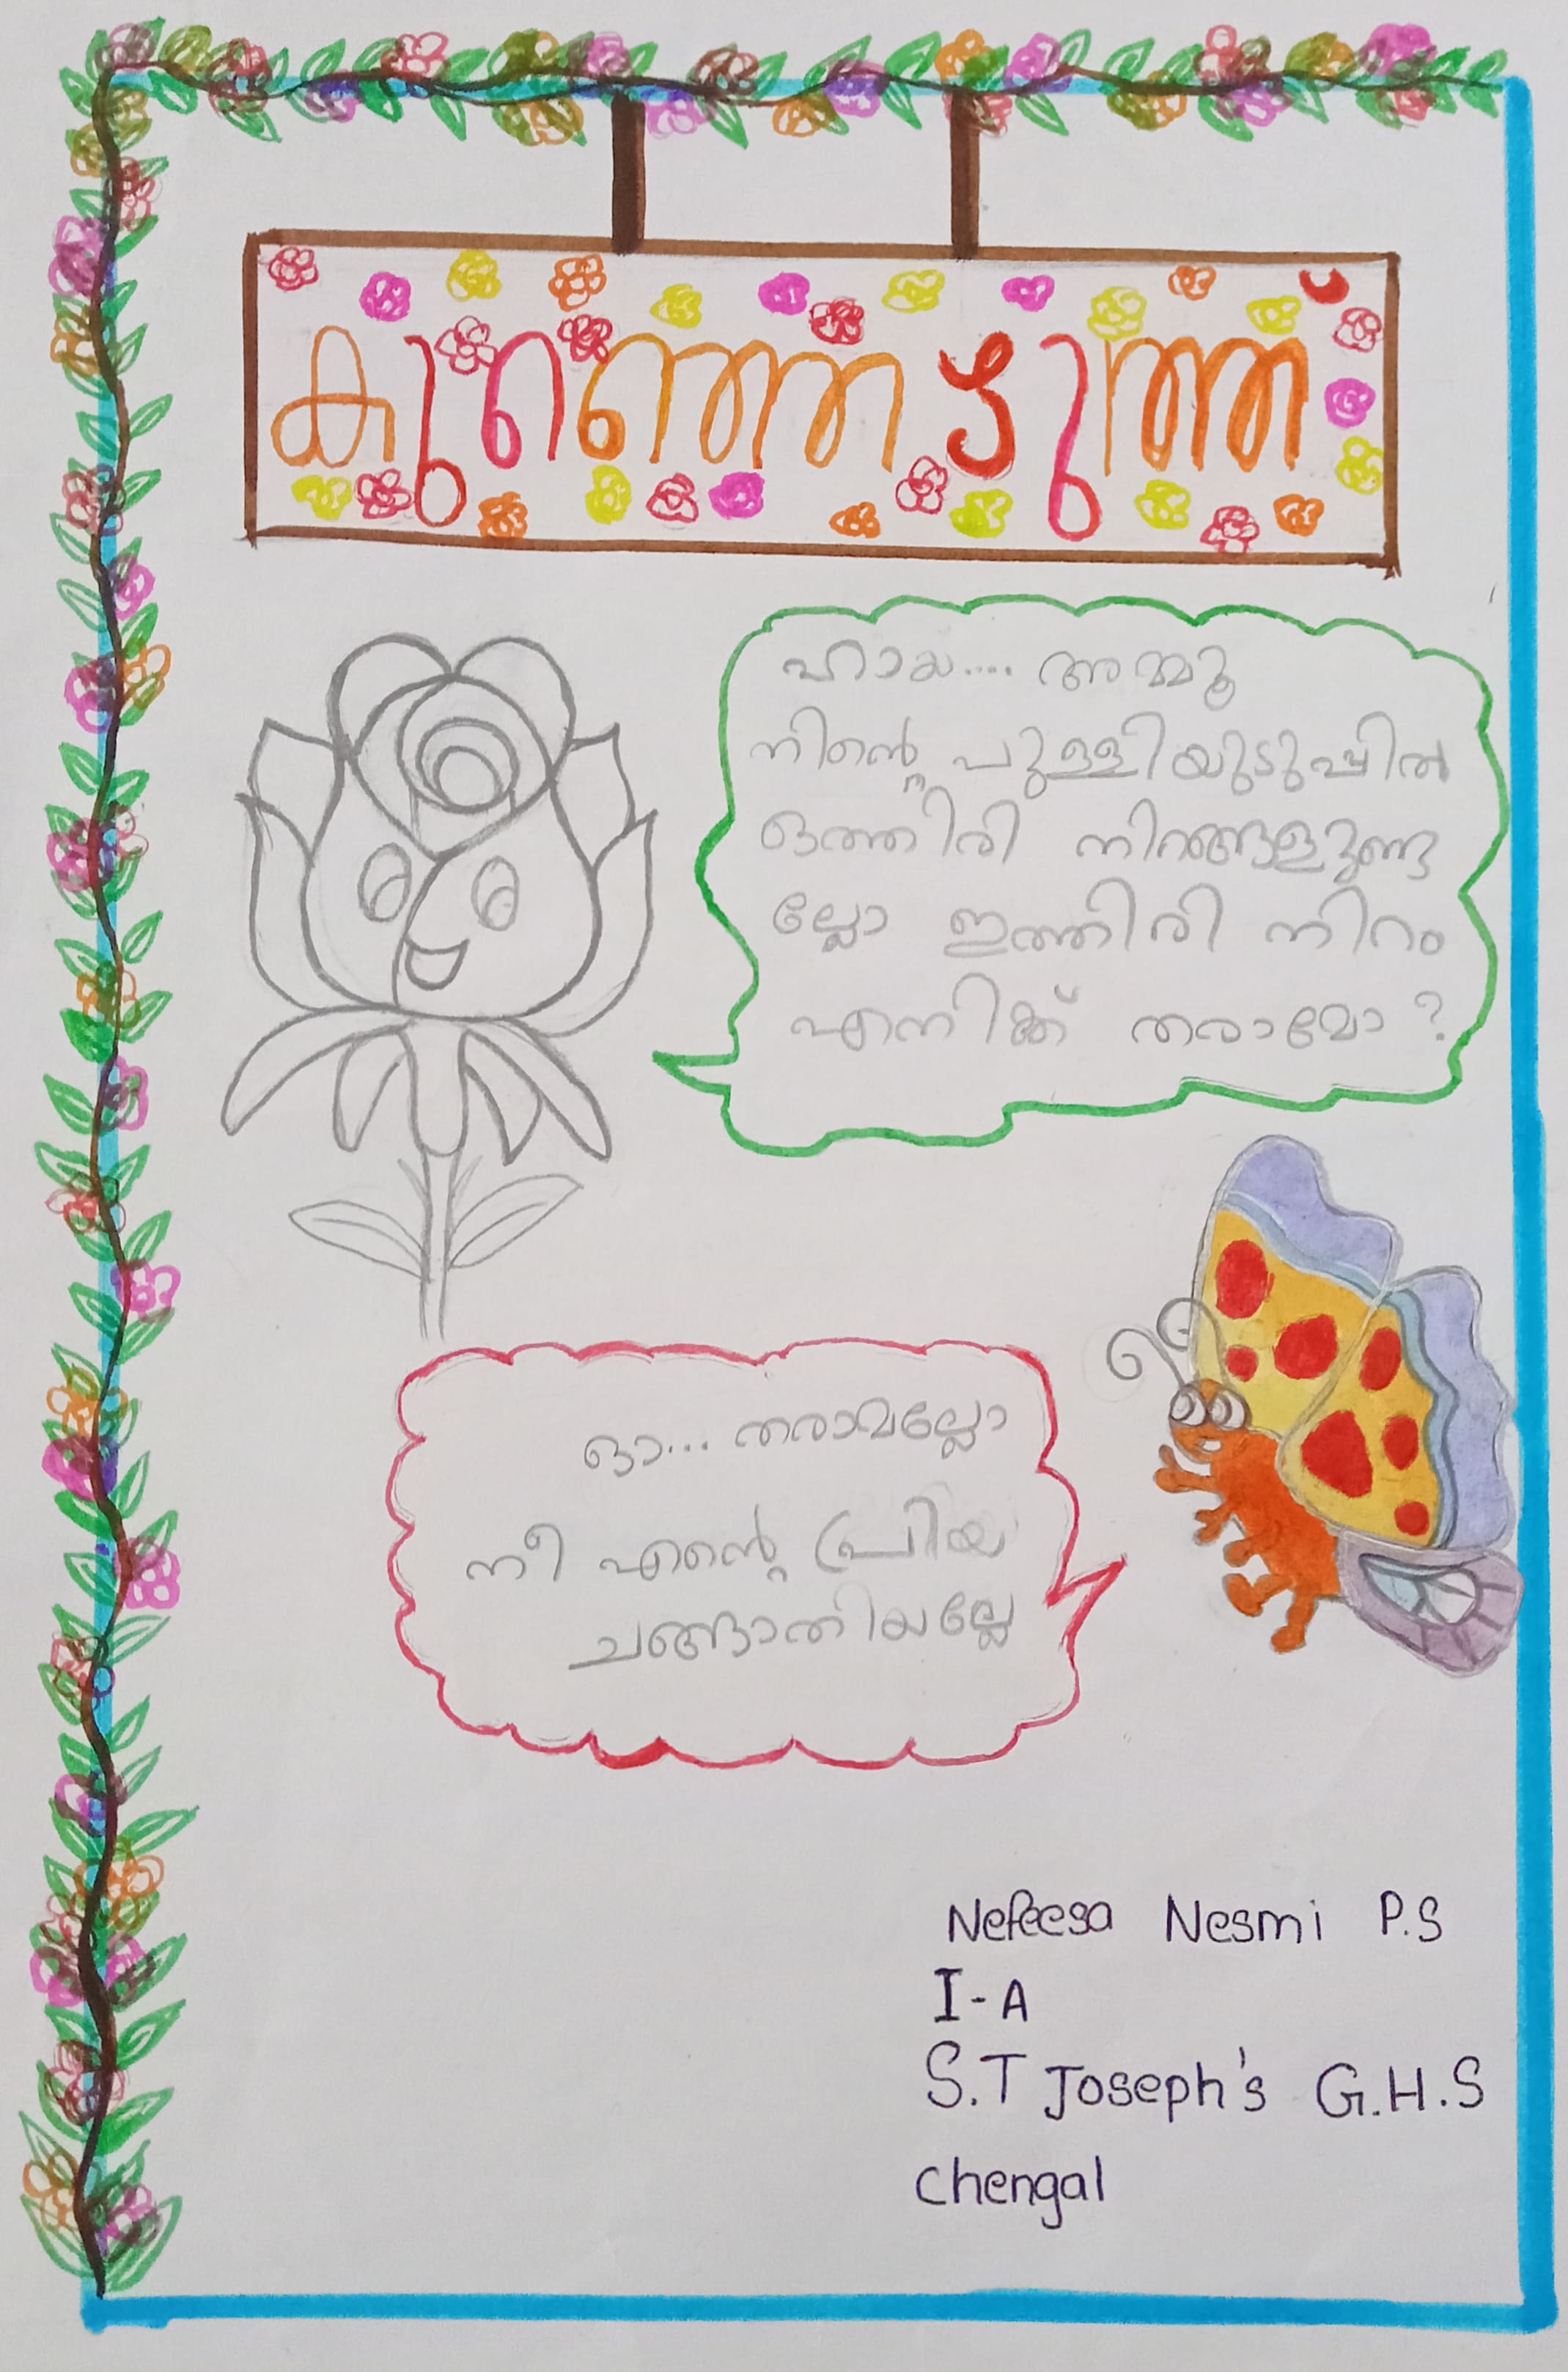 കുഞ്ഞെഴുത്ത്
ഹായ.... അമ്മൂ
നിന്റെ പുള്ളിയുടുപ്പിൽ
ഒത്തിരി നിറങ്ങളുണ്ട
ല്ലോ ഇത്തിരി നിറം
എനിക്ക് തരാമോ?
ഓ... തരാവല്ലോ
നീ എന്റെ പ്രിയ
ചങ്ങാതിയല്ലേ
Nefeesa Nesmi P.S
I-A
S.T Joseph's G.H.S
Chengal